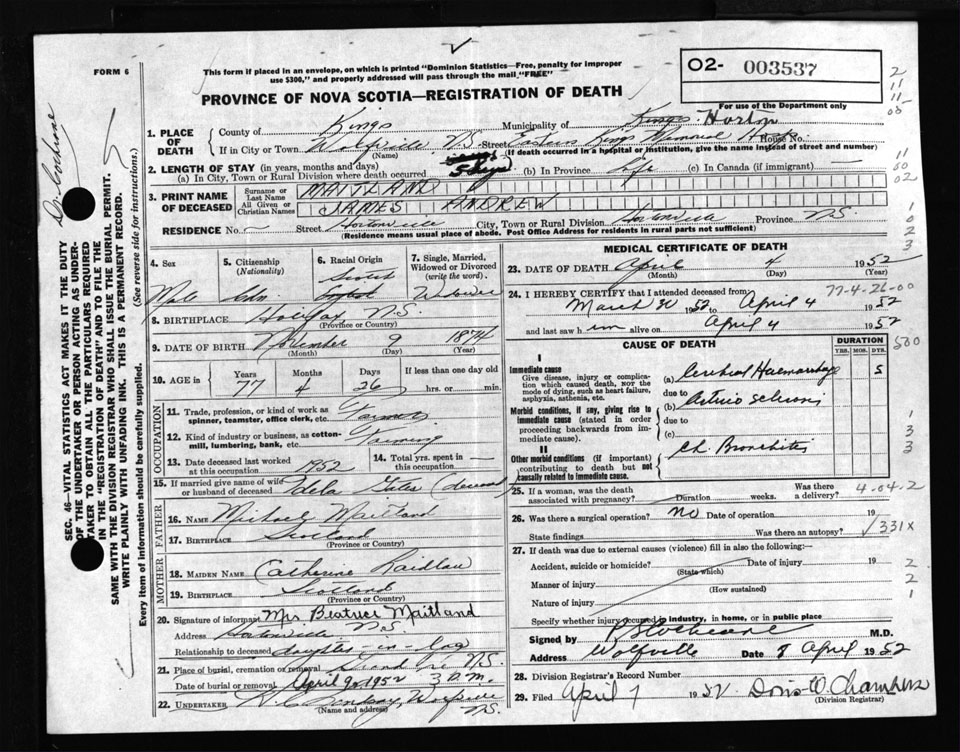 FORM 6
This form if placed in an envelope, on which is printed "Dominion Statistics—Free, penalty for improper
use $300," and properly addressed will pass through the mail "FREE"
O2- 003537
PROVINCE OF NOVA SCOTIA—REGISTRATION OF DEATH
For use of the Department only
1. PLACE OF DEATH
County of Kings Municipality of Kings Horton
If in City or Town Wolfville N.S. Street Eastern Kings Memorial House No.
(Name) (If death occurred in a hospital or institution, give the name instead of street and number)
2. LENGTH OF STAY (in years, months and days)
(a) In City, Town or Rural Division where death occurred 5 days (b) In Province Life (c) In Canada (if immigrant)
3. PRINT NAME OF DECEASED
Surname or Last Name MAITLAND
All Given or Christian Names JAMES ANDREW
RESIDENCE No. Street Hortonville City, Town or Rural Division Hortonville Province N.S.
(Residence means usual place of abode. Post Office Address for residents in rural parts not sufficient)
4. Sex
Male
5. Citizenship
(Nationality)
Cdn.
6. Racial Origin
Scotch
7. Single, Married, Widowed or Divorced
(write the word).
Widower
8. BIRTHPLACE Halifax N.S.
(Province or Country)
9. DATE OF BIRTH November 9 1874
(Month) (Day) (Year)
10. AGE in Years Months Days If less than one day
77 4 26 hrs. or min.
OCCUPATION
11. Trade, profession, or kind of work as
spinner, teamster, office clerk, etc. Farmer
12. Kind of industry or business, as cotton-
mill, lumbering, bank, etc. Farming
13. Date deceased last worked
at this occupation 1952
14. Total yrs. spent in
this occupation
15. If married give name of wife
or husband of deceased Adela (deceased)
FATHER
16. NAME Michael Maitland
17. BIRTHPLACE Scotland
(Province or Country)
MOTHER
18. MAIDEN NAME Catherine Laidlaw
19. BIRTHPLACE Scotland
(Province or Country)
20. Signature of informant Mrs Beatrice Maitland
Address Hortonville N.S.
Relationship to deceased daughter-in-law
21. Place of burial, cremation or removal Grand Pre N.S.
Date of burial or removal April 9, 1952
22. UNDERTAKER Wolfville
(Name and address) N.S.
MEDICAL CERTIFICATE OF DEATH
23. DATE OF DEATH April 4 1952
(Month) (Day) (Year)
77-4-26-00
24. I HEREBY CERTIFY that I attended deceased from
March 30 1952 to April 4 1952
and last saw him alive on April 4 1952
CAUSE OF DEATH
DURATION
YRS. MOS. DYS.
I
Immediate cause
Give disease, injury or complica-
tion which caused death, nor the
mode of dying, such as heart failure,
asphyxia, asthenia, etc.
(a) Cerebral Haemorrhage 5
due to
Morbid conditions, if any, giving rise to
immediate cause (stated in order
proceeding backwards from im-
mediate cause).
(b)
due to
(c)
II
Other morbid conditions (if important)
contributing to death but not
causally related to immediate cause.
Ch. Bronchitis
25. If a woman, was the death
associated with pregnancy? Duration weeks. Was there
a delivery?
4-04-2
26. Was there a surgical operation? NO Date of operation 19
State findings Was there an autopsy?
331X
27. If death was due to external causes (violence) fill in also the following:—
Accident, suicide or homicide? Date of injury 19
(State which)
Manner of injury
(How sustained)
Nature of injury
Specify whether injury occurred in industry, in home, or in public place
Signed by M.D.
Address Wolfville Date 8 April 1952
28. Division Registrar's Record Number
29. Filed April 7 1952 Doris W. Chambers
(Division Registrar)
SEC. 46—VITAL STATISTICS ACT MAKES IT THE DUTY
OF THE UNDERTAKER OR PERSON ACTING AS UNDER-
TAKER TO OBTAIN ALL THE PARTICULARS REQUIRED
IN THE "REGISTRATION OF DEATH" AND TO FILE THE
SAME WITH THE DIVISION REGISTRAR WHO SHALL ISSUE THE BURIAL PERMIT.
WRITE PLAINLY WITH UNFADING INK. THIS IS A PERMANENT RECORD.
Every item of information should be carefully supplied. (See reverse side for instructions.)
Dr. Cochrane